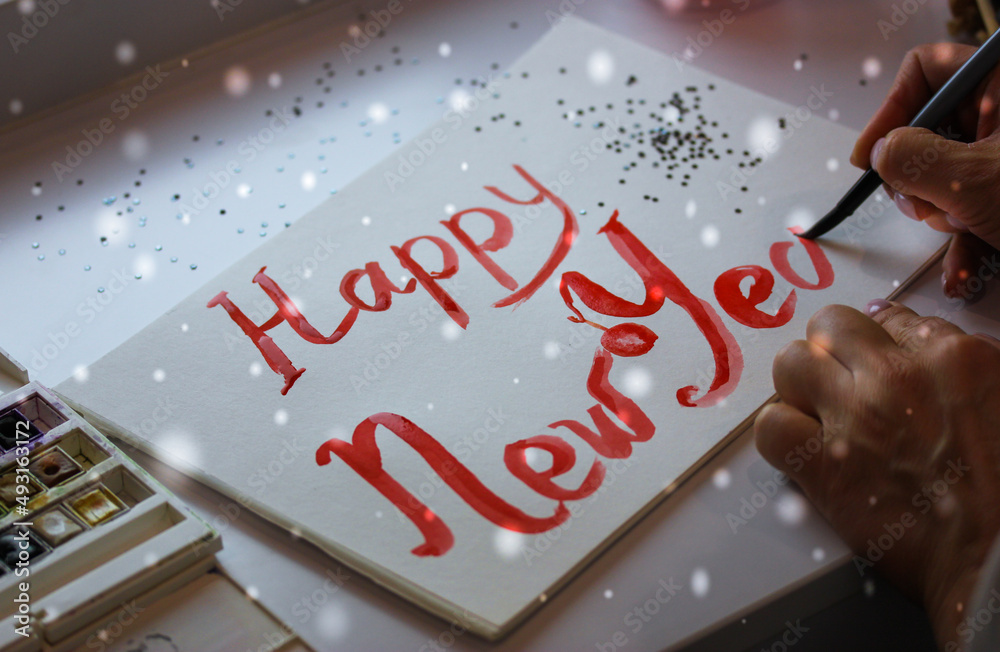 Happy
New Yea
Adobe Stock | #493163172